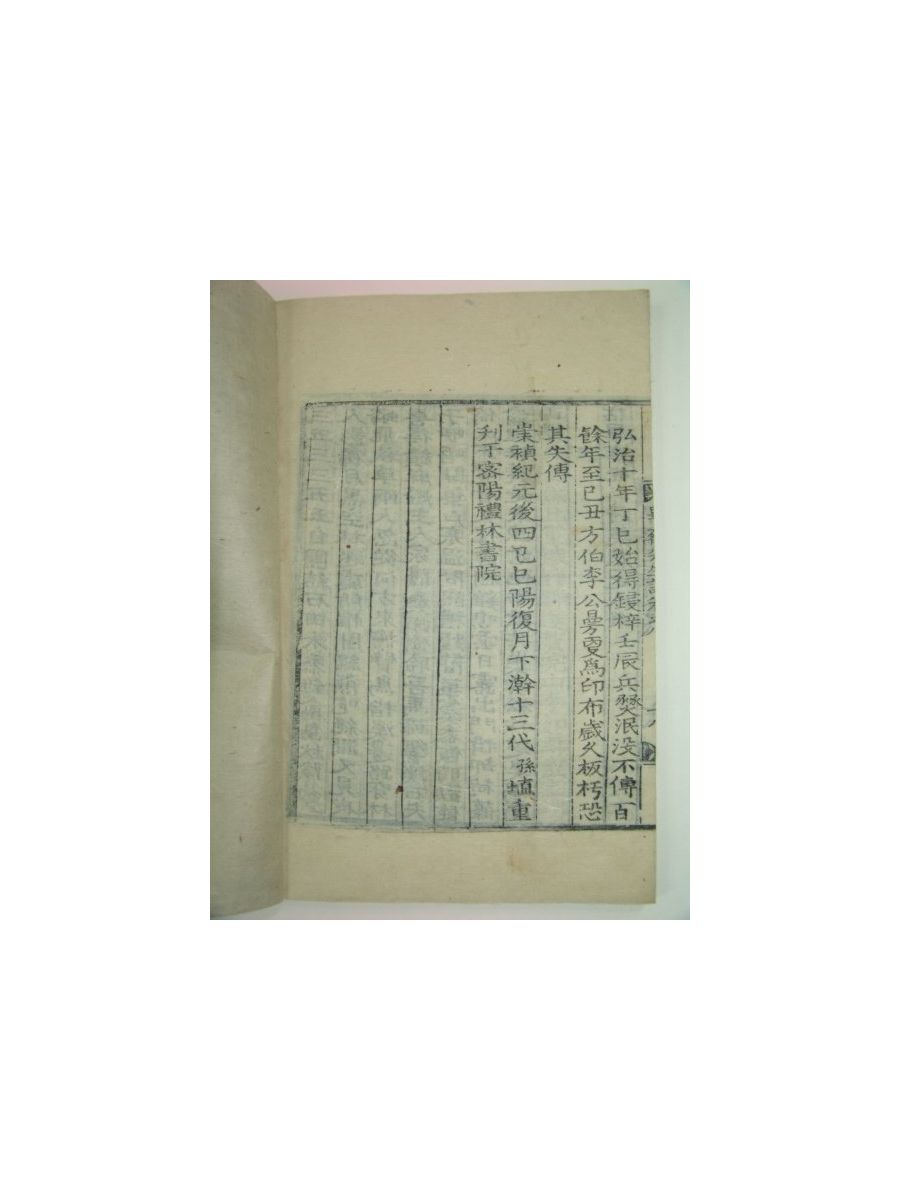 弘治十年丁巳始得鋟梓壬辰兵燹泯没不傳百
餘年至己丑方伯李公曼夏爲印布歲久板朽恐
其失傳
崇禎紀元後四己巳陽復月下澣十三代孫埴重
刋于密陽禮林書院